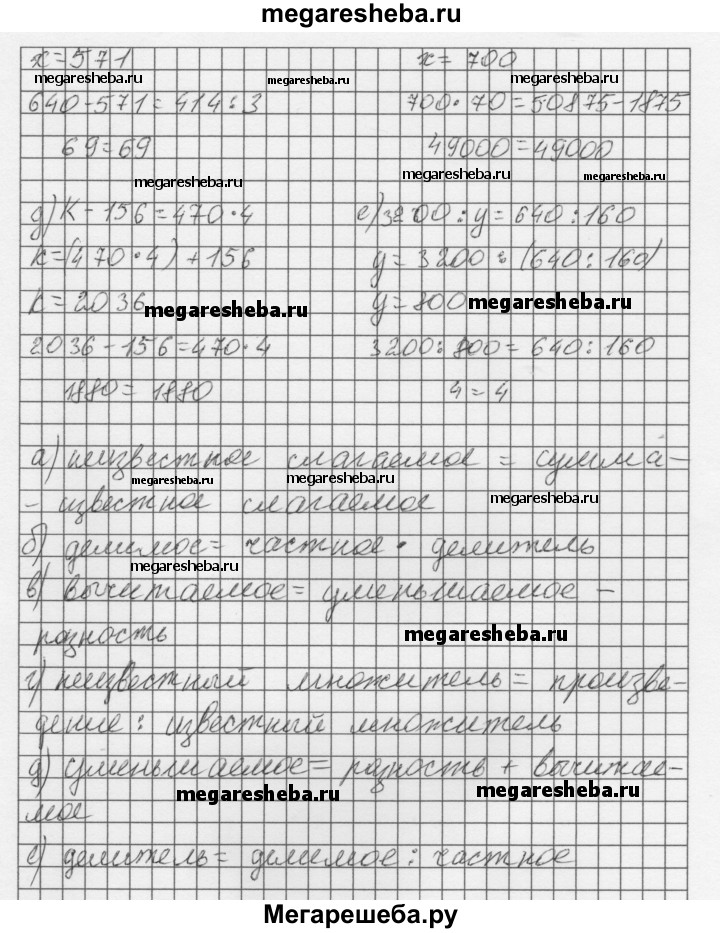 megaresheba.ru
x=571 x=700
megaresheba.ru megaresheba.ru megaresheba.ru
640-571=414:3 700·70=50875-1875
69=69 49000=49000
megaresheba.ru megaresheba.ru megaresheba.ru
д) К-156=470·4 е) 3200:y=640:160
k=(470·4)+156 y=3200:(640:160)
k=2036 y=800
megaresheba.ru megaresheba.ru
2036-156=470·4 3200:800=640:160
1880=1880 4=4
а) неизвестное слагаемое = сумма-
megaresheba.ru megaresheba.ru megaresheba.ru
- известное слагаемое
б) делимое = частное · делитель
megaresheba.ru
в) вычитаемое = уменьшаемое -
разность
megaresheba.ru
г) неизвестный множитель = произве-
дение : известный множитель
д) уменьшаемое = разность + вычитае-
megaresheba.ru megaresheba.ru
мое
е) делитель = делимое : частное
Мегарешеба.ру